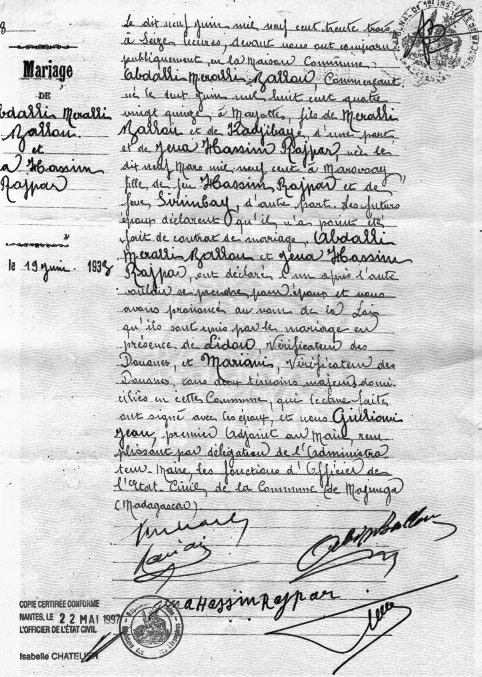 8
Mariage
DE
Abdalli Meralli
Ballou
et
a Hassim
Rajpar
le 19 juin 1933
Le dix neuf juin mil neuf cent trente trois
à Seize heures, devant nous ont comparu
publiquement en la Maison Commune:
Abdalli Meralli Ballou, Commerçant,
né le huit juin mil huit cent quatre
vingt quinze, à Mayotte, fils de Meralli
Ballou et de Kadjibaye, d'une part
et de Jena Hassim Rajpar, née le
dix neuf Mars mil neuf cent à Marovoay
fille de feu Hassim Rajpar et de
feue Sirimbay, d'autre part. Les futurs
époux déclarent qu'il n'a point été
fait de contrat de mariage. Abdalli
Meralli Ballou et Jena Hassim
Rajpar, ont déclaré l'un après l'autre
vouloir se prendre pour époux et nous
avons prononcé au nom de la Loi
qu'ils sont unis par le mariage en
présence de Lidou, Vérificateur des
Douanes, et Mariani, Vérificateur des
Douanes, tous deux témoins majeurs domi-
ciliés en cette Commune, qui lecture faite
ont signé avec les époux, et nous
Jean, premier Adjoint au Maire, rem-
plissant par délégation de l'Administra-
teur-Maire, les fonctions d'Officier de
l'Etat-Civil, de la Commune de Majunga
(Madagascar)
a Hassim Rajpar
COPIE CERTIFIÉE CONFORME
NANTES, LE 22 MAI 1997
L'OFFICIER DE L'ÉTAT CIVIL
Isabelle CHATELIER